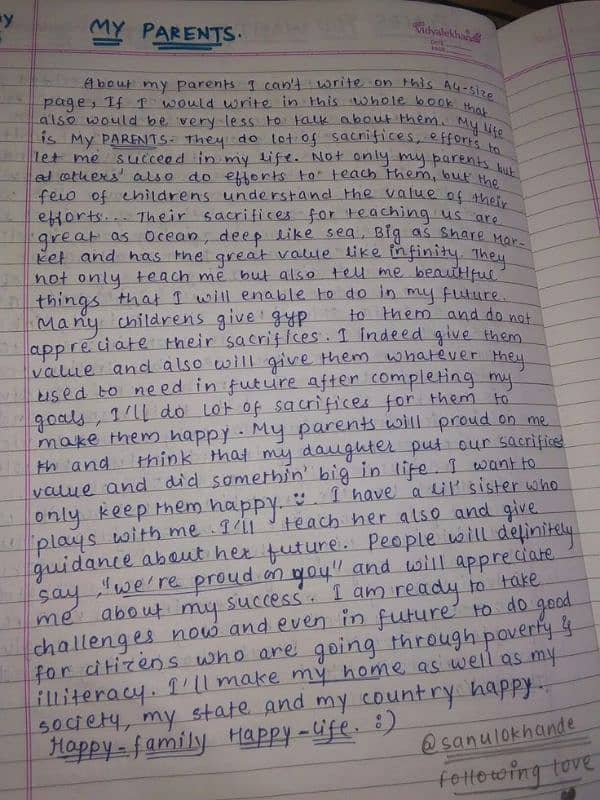 MY PARENTS.
Vidyalekhan
DATE
PAGE
About my parents I can't write on this A4-size
page, If I would write in this whole book that
also would be very less to talk about them. My life
is MY PARENTS. They do lot of sacrifices, efforts to
let me succeed in my life. Not only my parents but
others' also do efforts to teach them, but the
few of childrens understand the value of their
efforts... Their sacrifices for teaching us are
great as Ocean, deep like sea, Big as share Mar-
ket and has the great value like infinity. They
not only teach me but also tell me beautiful
things that I will enable to do in my future.
Many childrens give gyp to them and do not
appreciate their sacrifices. I indeed give them
value and also will give them whatever they
used to need in future after completing my
goals, I'll do lot of sacrifices for them to
make them happy. My parents will proud on me
th and think that my daughter put our sacrifices
value and did somethin' big in life. I want to
only keep them happy. :) I have a lil' sister who
plays with me. I'll teach her also and give
guidance about her future. People will definitely
say "we're proud on you" and will appreciate
me about my success. I am ready to take
challenges now and even in future to do good
for citizens who are going through poverty &
illiteracy. I'll make my home as well as my
society, my state and my country happy.
Happy-family Happy-Life. :)
@sanulokhande
following love